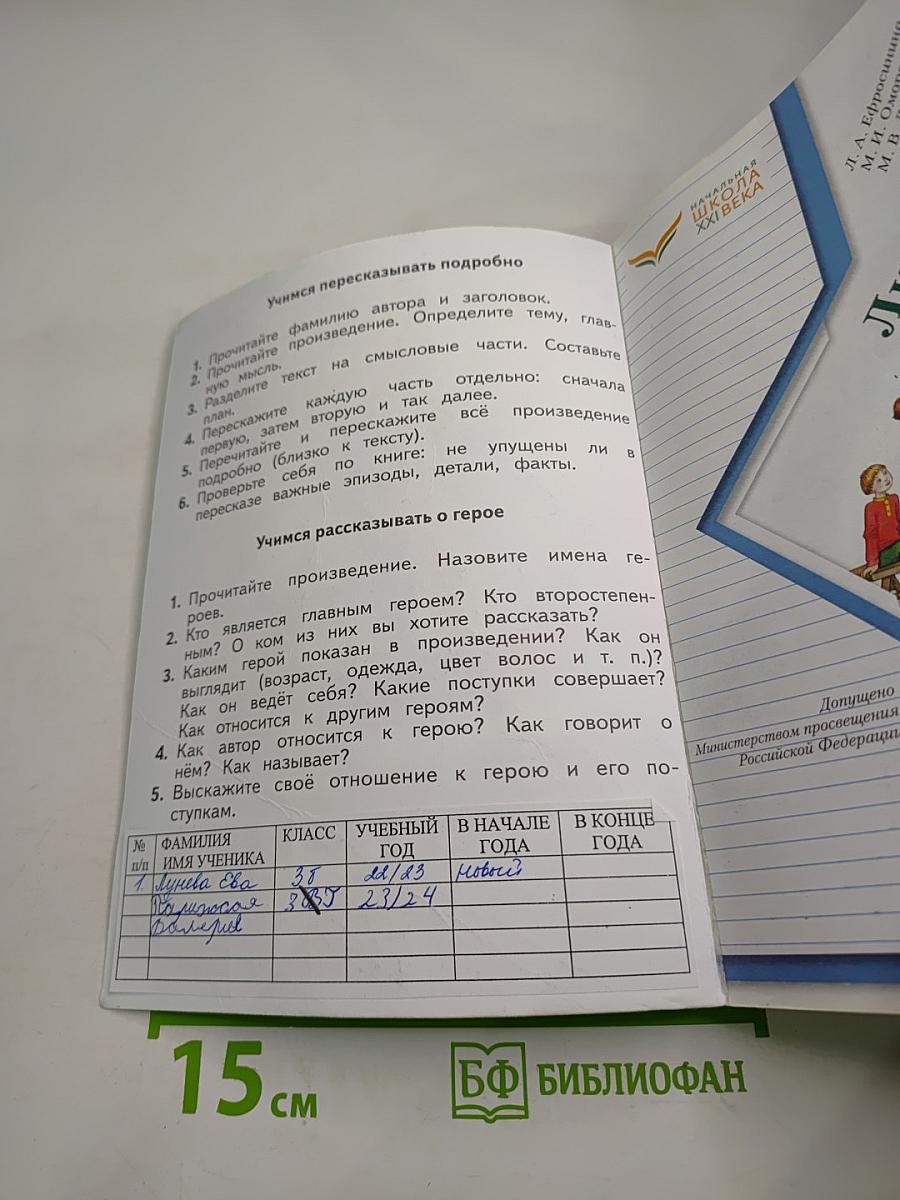 Учимся пересказывать подробно
1. Прочитайте фамилию автора и заголовок.
2. Прочитайте произведение. Определите тему, глав-
ную мысль.
3. Разделите текст на смысловые части. Составьте
план.
4. Перескажите каждую часть отдельно: сначала
первую, затем вторую и так далее.
5. Перечитайте и перескажите всё произведение
подробно (близко к тексту).
6. Проверьте себя по книге: не упущены ли в
пересказе важные эпизоды, детали, факты.
Учимся рассказывать о герое
1. Прочитайте произведение. Назовите имена ге-
роев.
2. Кто является главным героем? Кто второстепен-
ным? О ком из них вы хотите рассказать?
3. Каким герой показан в произведении? Как он
выглядит (возраст, одежда, цвет волос и т. п.)?
Как он ведёт себя? Какие поступки совершает?
Как относится к другим героям?
4. Как автор относится к герою? Как говорит о
нём? Как называет?
5. Выскажите своё отношение к герою и его по-
ступкам.
№ п/п ФАМИЛИЯ ИМЯ УЧЕНИКА КЛАСС УЧЕБНЫЙ ГОД В НАЧАЛЕ ГОДА В КОНЦЕ ГОДА
1. Лунева Ева 3б 22/23 новый
3 23/24
Валерия
НАЧАЛЬНАЯ
ШКОЛА
XXI ВЕКА
Л. А. Ефросинина
М. И. Омор
М. В.
Ли
Допущено
Министерством просвещения
Российской Федерации
15 см
БФ БИБЛИОФАН